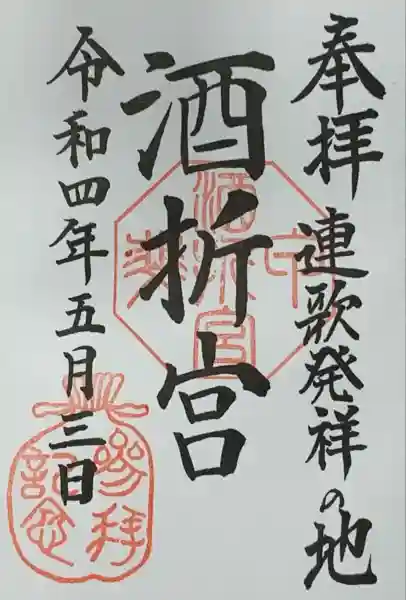 奉拝 連歌発祥の地
酒折宮
令和四年五月三日
酒折宮
參拝記念